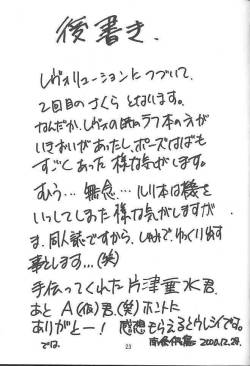 後書き.
レヴォリューションにつづいて、
2回目のさくら となります。
なんだか、レヴォの時のラフ本の方が
いきおいがあったし、ポーズはばも
すごくあった 様な気がします。
むう… 無念… ルリ本は機を
いっしてしまった 様な気がしますが
ま、同人誌ですから、しゅみで、ゆっくり出す
事とします…(笑)
手伝ってくれた 片津亜水君.
あと A(仮)君.(笑) ホントに
ありがとー! 感想もらえるとウレシイです。
では. 2000.12.29.
23